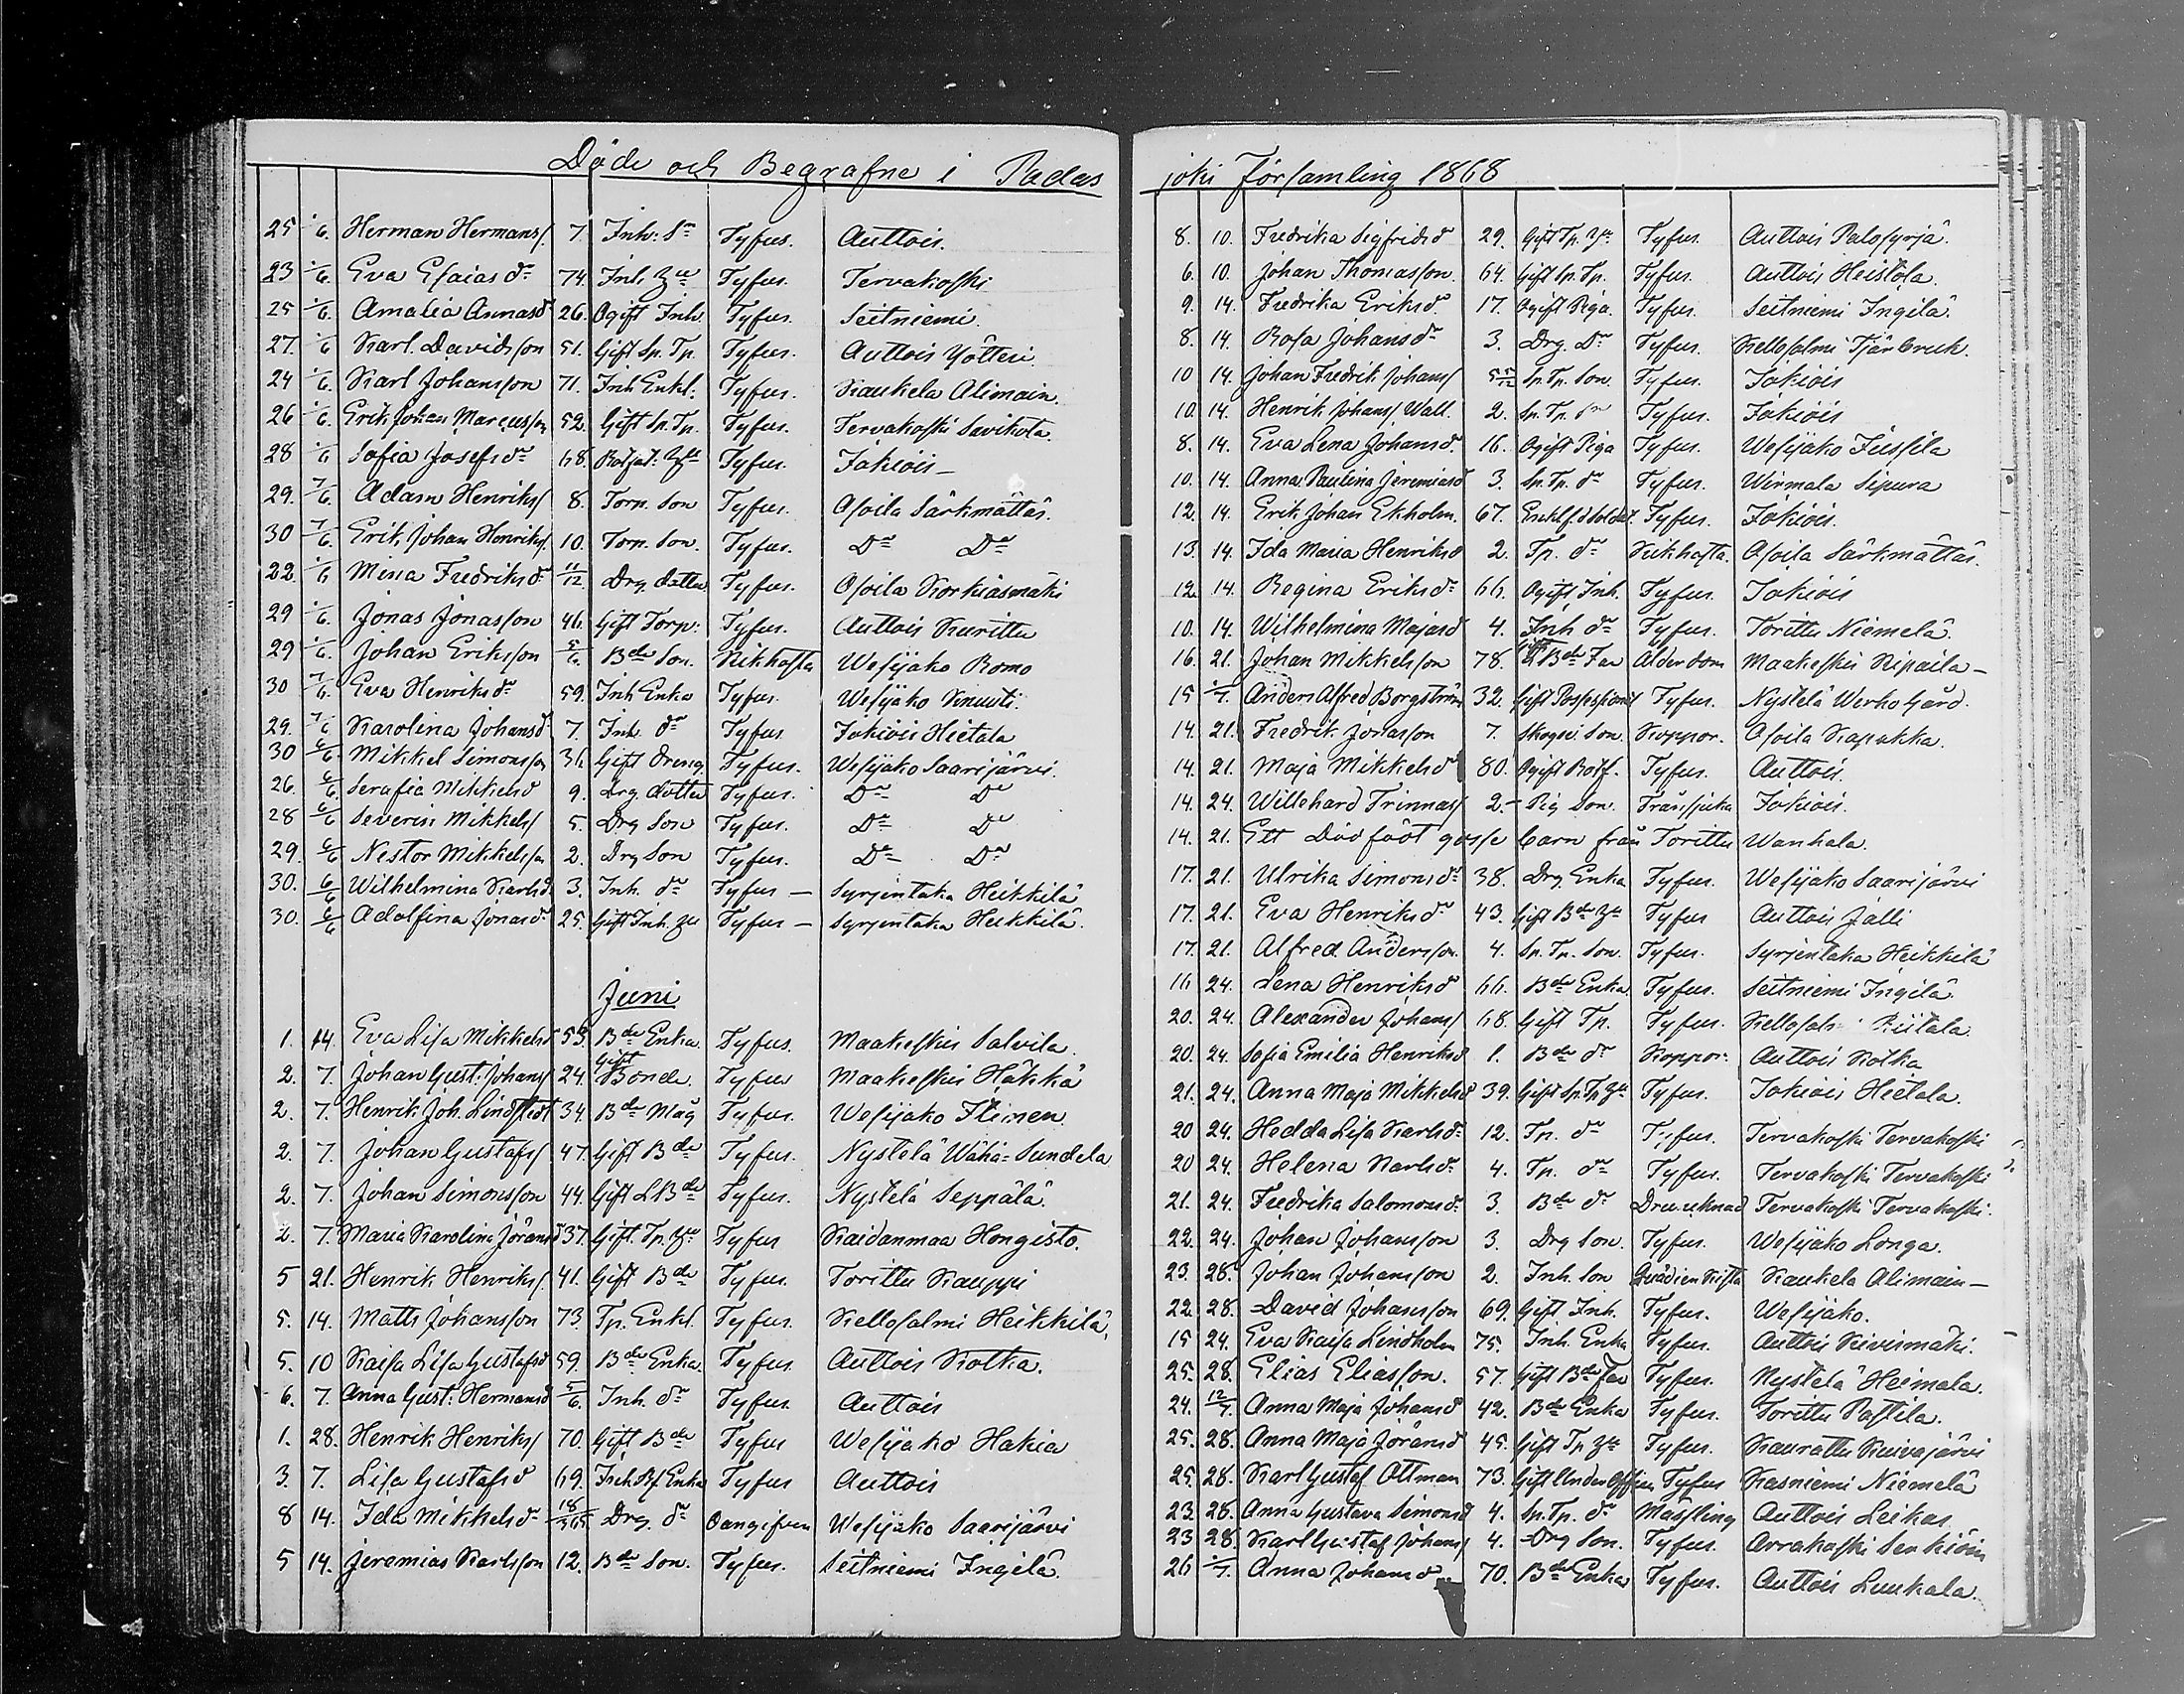 Döde och Begrafne i Padas
25 1/6. Herman Hermans/ 7. Inh: Sn Tyfus. Auttois.
23 1/6. Eva Esaiasdr 74. Inh. Tyfus. Tervakoski
25 1/6. Amalia Annasd 26. Ogift Inh. Tyfus. Seitniemi.
27. 1/6 Karl Davidsson 51. Gift Sp. Tp. Tyfus. Auttois Yötteri
24 1/6. Karl Johansson 71. Inh Enkl. Tyfus. Kaukela Alimain.
26 1/6. Erik Johan Marcusson 52. Gift Sp. Tp. Tyfus. Tervakoski Savikota.
28 1/6 Sofia Josefsdr 68. Tyfus. Jokiois –
29. 7/6 Adam Henriks/ 8. Torp. Son Tyfus. Osoila Särkmättäs.
30 7/6. Erik Johan Henriks/ 10. Torp. Son. Tyfus. Do Do
22. 1/6 Mina Fredriksdr 11/12 Drg. dotter Tyfus. Osoila Korkiasmäki
29 1/6. Jonas Jonasson 46. Gift Torp: Tyfus. Auttois Kurittu
29 1/6. Johan Eriksson 5/6. Bde Son. Kikhosta Wesijako Romo
30 7/6. Eva Henriksdr 59. Inh Enka Tyfus. Wesijako Knuuti.
29. 7/6 Karolina Johansd 7. Inh. dr Tyfus Jokiois Hietala
30 6/6. Mikkel Simonsson 36. Gift Dreng Tyfus. Wesijako Saarijärvi.
26. 6/6. Serafia Mikkelsd 9. Drg. dotter Tyfus. Do Do
28 6/6 Severin Mikkels/ 5. Drg Son Tyfus. Do Do
29. 6/6 Nestor Mikkelsson 2. Drg Son Tyfus. Do Do
30. 6/6 Wilhelmina Karlsd 3. Inh. dr Tyfus – Syrjentaka Heikkilä
30. 6/6 Adolfina Jonasdr 25. Gift Inh. Tyfus – Syrjentaka Heikkilä.
Juni
1. 14. Eva Lisa Mikkelsd 53. Bde Enka. Tyfus. Maakeskis Salvila.
2. 7. Johan Gust: Johans/ 24. Gift Bonde. Tyfus Maakeskis Häkkä
2. 7. Henrik Joh. Lindstedt 34. Bde Måg Tyfus. Wesijako Ilinen.
2. 7. Johan Gustafs/ 47. Gift Bde Tyfus. Nystelä Wähä-Sundela
2. 7. Johan Simonsson 44. Gift L Bde Tyfus. Nystelä Seppälä.
2. 7. Maria Karolina Joransd 37. Gift. Tp. Tyfus Kaidanmaa Hongisto.
5 21. Henrik Henriks/ 41. Gift Bde Tyfus. Torittu Kauppi
5. 14. Matts Johansson 73. Tp. Enkl. Tyfus. Kellosalmi Heikkilä.
5. 10 Kaisa Lisa Gustafsd 59. Bde Enka. Tyfus. Auttois Kotka.
6. 7. Anna Gust: Hermansd 5/6. Inh. dr Tyfus Auttois
1. 28. Henrik Henriks/ 70. Gift Bde Tyfus Wesijako Hakia
3. 7. Lisa Gustafsd 69. Enka Tyfus Auttois
8 14. Ida Mikkelsdr 18/365 Drg. dr Oangifven Wesijako Saarijärvi
5 14. Jeremias Karlsson 12. Bde Son. Tyfus. Seitniemi Ingilä.
joki Församling 1868
8. 10. Fredrika Sigfridsd 29. Gift Tp. Tyfus. Auttois Palosyrjä.
6. 10. Johan Thomasson. 64. Gift Sp. Tp. Tyfus. Auttois Heistola.
9. 14. Fredrika Eriksd. 17. Ogift Piga. Tyfus. Seitniemi Ingilä.
8. 14. Rosa Johansdr 3. Drg. Dr Tyfus. Kellosalmi Tjärbruk.
10 14. Johan Fredrik Johans/ Sp. Tp. Son. Tyfus. Jokiois
10. 14. Henrik Johans/ Wall. 2. Sp. Tp. Sn Tyfus. Jokiois
8. 14. Eva Lena Johansd. 16. Ogift Piga Tyfus. Wesijako Jussila
10. 14. Anna Paulina Jeremiasd 3. Sp. Tp. dr Tyfus. Wirmala Sipura
12. 14. Erik Johan Ekholm. 67. Enkl. f.d Soldat. Tyfus. Jokiois.
13. 14. Ida Maria Henriksd 2. Tp. dr Kikhosta. Osoila Särkmättäs.
12. 14. Regina Eriksdr 66. Ogift Inh. Tyfus. Jokiois
10. 14. Wilhelmina Majasd 4. Inh dr Tyfus. Torittu Niemelä.
16. 21. Johan Mikkelsson 78. Gift L Bde Far Ålderdom Maakeskis Nipaila –
15 1/7. Anders Alfred Borgström 32. Gift Possessionat Tyfus. Nystelä Werho Gård.
14. 21. Fredrik Jonasson 7. Skogsv. Son. Koppor. Osoila Kapakka.
14. 21. Maja Mikkelsd 80. Ogift Rotf. Tyfus. Auttois.
14. 24. Willehard Trinnas/ 2. – Pig Son. Trånsjuka Jokiois.
14. 21. Ett Dödfödt gosse barn från Torittu Wanhala.
17. 21. Ulrika Simonsdr 38. Drg. Enka Tyfus. Wesijako Saarijärvi
17. 21. Eva Henriksdr 43. Gift Bde Tyfus Auttois Jälli
17. 21. Alfred Andersson. 4. Sp. Tp. Son. Tyfus. Syrjentaka Heikkilä
16 24. Lena Henriksd 66. Bde Enka Tyfus. Seitniemi Ingilä.
20. 24. Alexander Johans/ 68. Gift Tp. Tyfus. Riitala.
20. 24. Sofia Emilia Henriksd 1. Bde dr Koppor. Auttois Kotka
21. 24. Anna Maja Mikkelsd 39. Gift Sp. Tp Tyfus. Jokiois Hietala.
20 24. Hedda Lisa Karlsdr 12. Tp. dr Tyfus. Tervakoski Tervakoski
20 24. Helena Karlsdr 4. Tp. dr Tyfus. Tervakoski Tervakoski
21. 24. Fredrika Salomonsdr 3. Bde dr Drunknad Tervakoski Tervakoski.
22. 24. Johan Johansson 3. Drg Son. Tyfus. Wesijako Longa.
23. 28. Johan Johansson 2. Inh. Son Kaukela Alimain –
22. 28. David Johansson 69. Gift Inh. Tyfus. Wesijako.
15 24. Eva Kaisa Lindholm 75. Inh. Enka Tyfus. Auttois Kivismäki.
25. 28. Elias Eliasson. 57. Gift Bde Far Tyfus. Nystelä Heimala.
24. 12/7. Anna Maja Johansd 42. Bde Enka Tyfus. Torittu Pastila.
25. 28. Anna Maja Joransd 45. Gift Tp Tyfus. Kaurattu Kuivajärvi
25. 28. Karl Gustaf Ottman 73. Gift Underofficer Tyfus Kasniemi Niemelä
23 28. Anna Gustava Simonsd 4. Sp. Tp. dr Mässling Auttois Leikas.
23 28. Karl Gustaf Johans/ 4. Drg Son. Tyfus. Arrakoski
26 1/7. Anna Johansd 70. Bde Enka Tyfus. Auttois Luukala.